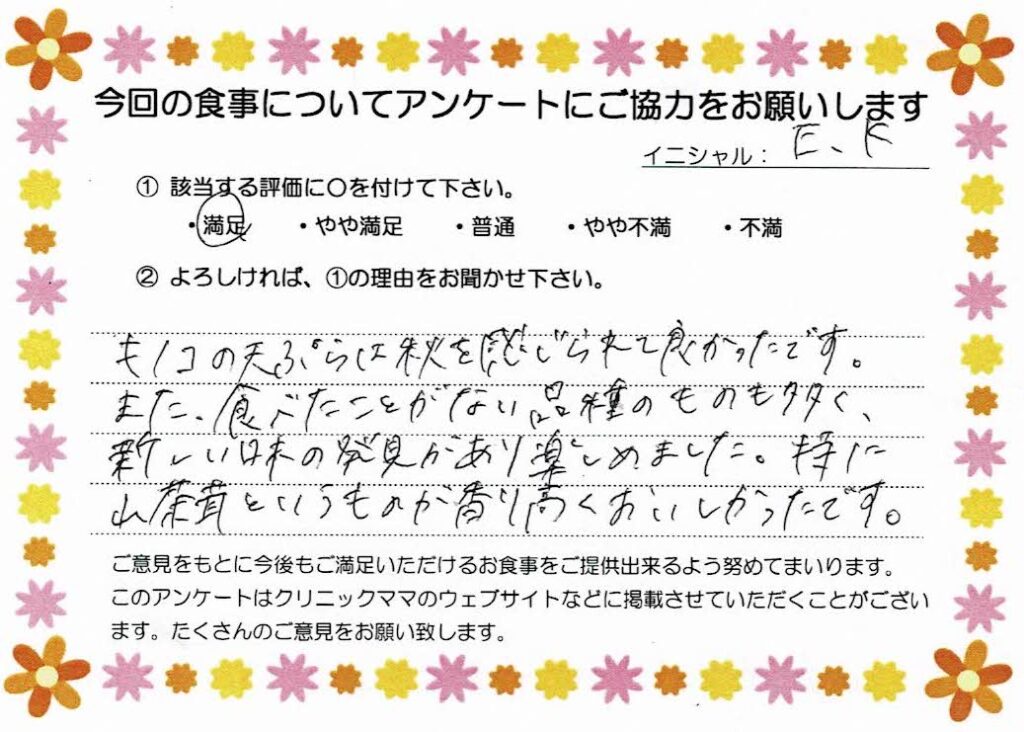 今回の食事についてアンケートにご協力をお願いします
イニシャル： E、K
① 該当する評価に○を付けて下さい。
・満足 ・やや満足 ・普通 ・やや不満 ・不満
② よろしければ、①の理由をお聞かせ下さい。
キノコの天ぷらは秋を感じられて良かったです。
また、食べたことがない品種のものも多く、
新しい日本の発見があり楽しめました。特に
山茶茸というものが香り高くおいしかったです。
ご意見をもとに今後もご満足いただけるお食事をご提供出来るよう努めてまいります。
このアンケートはクリニックママのウェブサイトなどに掲載させていただくことがござい
ます。たくさんのご意見をお願い致します。